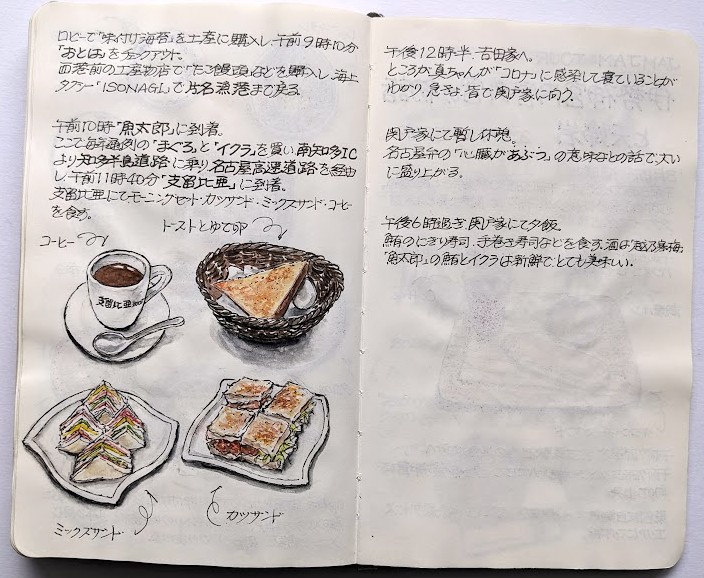 ロビーで「味付け海苔」を土産に購入し、午前9時10分
「おとは」をチェックアウト。
西港前の土産物店で「たこ饅頭」などを購入し、海上
タクシー「ISONAGI」で片名漁港まで戻る。
午前10時「魚太郎」に到着。
ここで毎年恒例の「まぐろ」と「イクラ」を買い、南知多IC
より知多半島道路に乗り、名古屋高速道路を経由
し、午前11時40分「支留比亜」に到着。
支留比亜にてモーニングセット・カツサンド・ミックスサンド・コーヒー
を食す。
トーストとゆで卵
コーヒー
支留比亜
ミックスサンド
カツサンド
午後12時半、吉田家へ。
ところが真ちゃんが「コロナ」に感染して寝ていることが
わかり、急きょ皆で関戸家に向う。
関戸家にて暫し休憩。
名古屋弁の「心臓があぶつ」の意味などの話で大い
に盛り上がる。
午後6時過ぎ、関戸家にて夕飯。
鮪のにぎり寿司、手巻き寿司などを食す。酒は「越乃寒梅」
「魚太郎」の鮪とイクラは新鮮でとても美味しい。